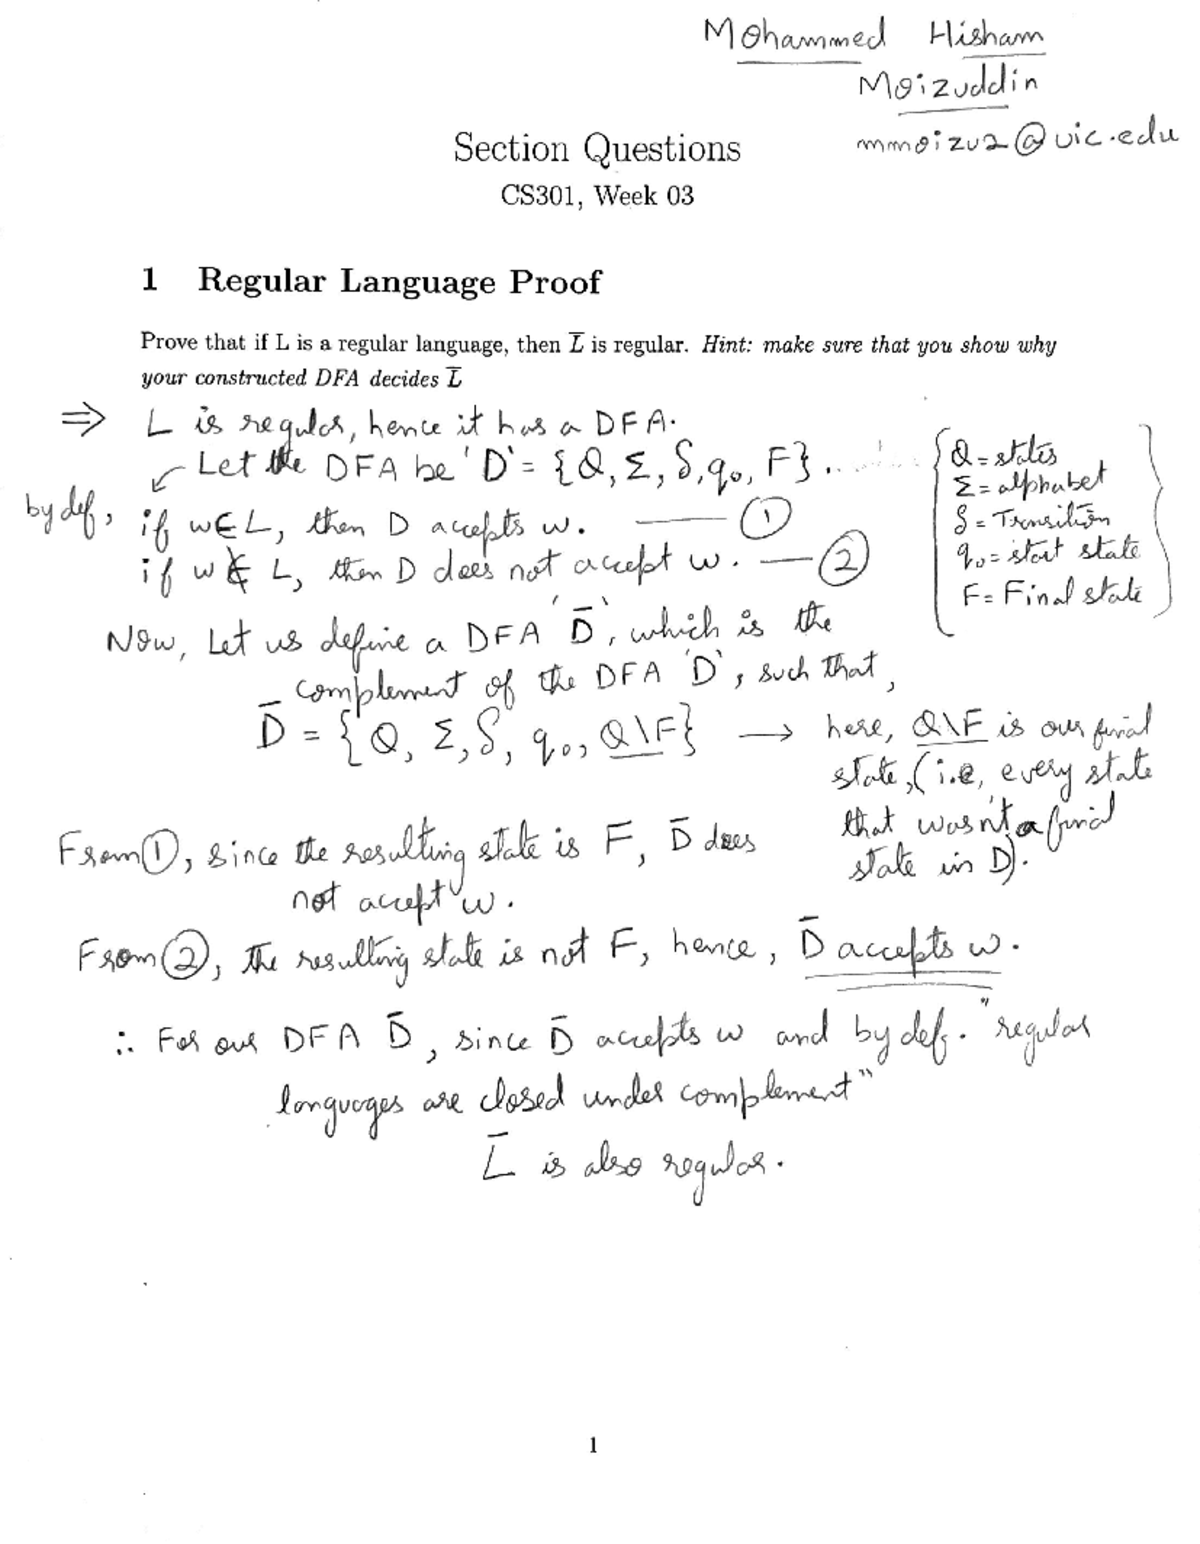 Mohammed Hisham
Moizuddin
mmoizu2@uic.edu
Section Questions
CS301, Week 03
1 Regular Language Proof
Prove that if L is a regular language, then L̅ is regular. Hint: make sure that you show why
your constructed DFA decides L̅
⇒ L is regular, hence it has a DFA.
Let the DFA be 'D' = {Q, Σ, δ, q₀, F}.
by def, if w∈L, then D accepts w. — ①
if w ∉ L, then D does not accept w. — ②
Q = states
Σ = alphabet
δ = Transition
q₀ = start state
F = Final state
Now, Let us define a DFA 'D̅', which is the
complement of the DFA 'D', such that,
D̅ = {Q, Σ, δ, q₀, Q\F} → here, Q\F is our final
state, (i.e, every state
that wasn't a final
state in D).
From ①, since the resulting state is F, D̅ does
not accept w.
From ②, the resulting state is not F, hence, D̅ accepts w.
∴ For our DFA D̅, since D̅ accepts w and by def. "regular
languages are closed under complement"
L̅ is also regular.
1